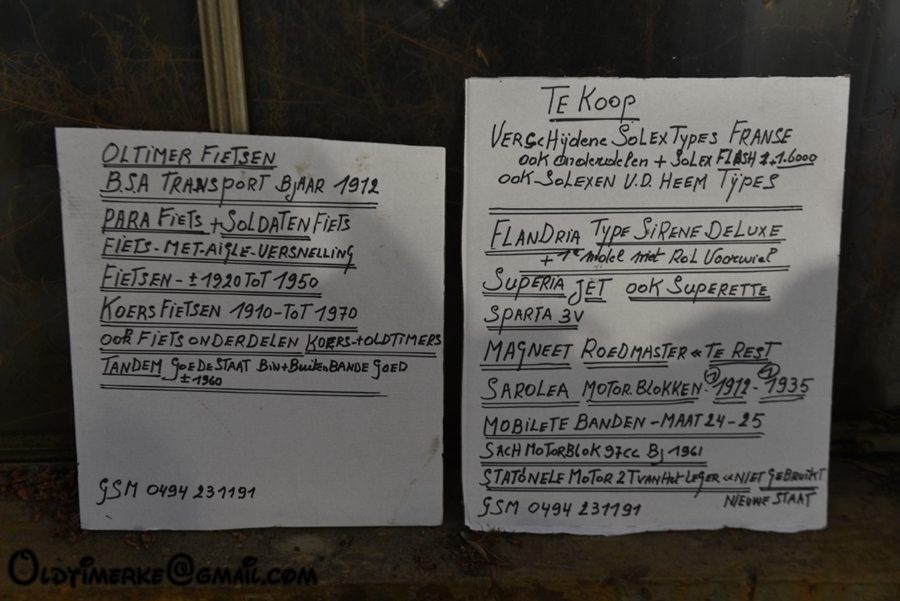 OLTIMER FIETSEN
B.S.A TRANSPORT BJAAR 1912
PARA FIETS + SOLDATEN FIETS
FIETS-MET-AIGLE-VERSNELLING
FIETSEN-±1920 TOT 1950
KOERS FIETSEN 1910-TOT 1970
OOK FIETS ONDERDELEN KOERS-+OLDTIMERS
TANDEM GOEDE STAAT BIN+BUITEN BANDE GOED
±1960
GSM 0494 231191
TE KOOP
VERSCHIJDENE SOLEX TYPES FRANSE
OOK ONDERDELEN + SOLEX FLASH 2+1.6000
OOK SOLEXEN V.D. HEEM TYPES
FLANDRIA TYPE SIRENE DE LUXE
+ 1e model met ROL Voorwiel
SUPERIA JET OOK SUPERETTE
SPARTA 3V
MAGNEET ROEDMASTER " TE REST
SAROLEA MOTOR BLOKKEN-① 1912-① 1935
MOBILETE BANDEN-MAAT 24-25
SACH MOTORBLOK 97cc BJ 1961
STATÖNELE MOTOR 2T VAN Het LEGER " NIET GEBRUIKT
NIEUWE STAAT
GSM 0494 231191
OLDTIMERKE@GMAIL.COM